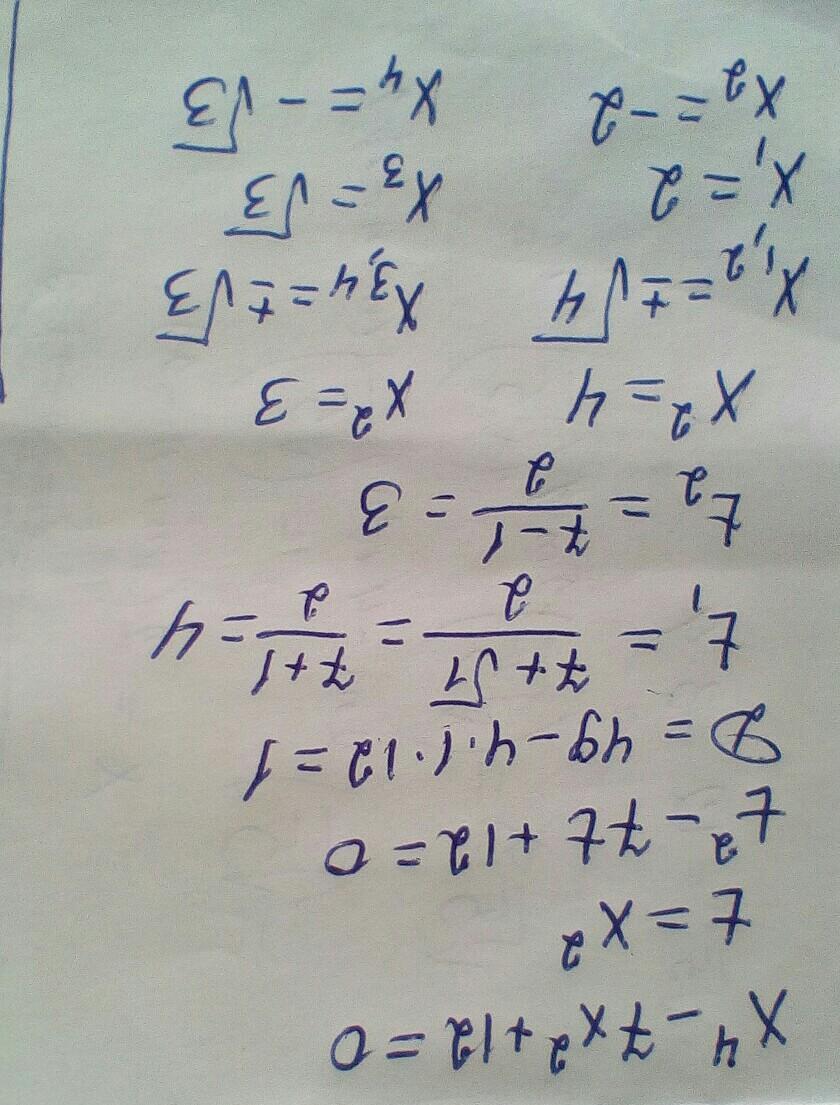 x⁴ - 7x² + 12 = 0
t = x²
t² - 7t + 12 = 0
D = 49 - 4·1·12 = 1
t₁ = (7 + √1)/2 = (7 + 1)/2 = 4
t₂ = (7 - 1)/2 = 3
x² = 4    x² = 3
x₁,₂ = ±√4    x₃,₄ = ±√3
x₁ = 2    x₃ = √3
x₂ = -2    x₄ = -√3